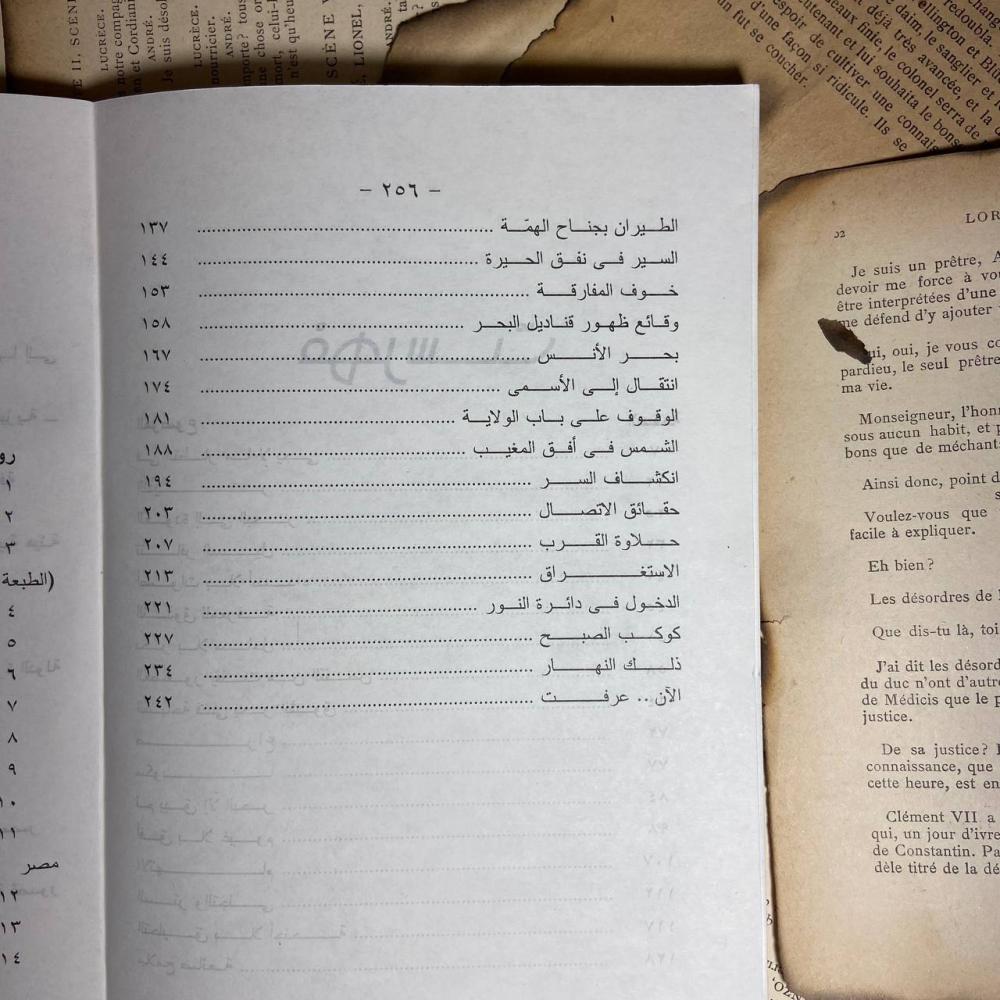 - ٢٥٦ -
الطيران بجناح الهمّة ١٣٧
السير فى نفق الحيرة ١٤٤
خوف المفارقة ١٥٣
وقائع ظهور قناديل البحر ١٥٨
بحر الأنس ١٦٧
انتقال إلى الأسمى ١٧٤
الوقوف على باب الولاية ١٨١
الشمس فى أفق المغيب ١٨٨
انكشاف السر ١٩٤
حقائق الاتصال ٢٠٣
حلاوة القرب ٢٠٧
الاستغراق ٢١٣
الدخول فى دائرة النور ٢٢١
كوكب الصبح ٢٢٧
ذلك النهار ٢٣٤
الآن.. عرفت ٢٤٢
رو
١
٢
٣
(الطبعة
٤
٥
٦
٧
٨
٩
١٠
١١
مصر
١٢
١٣
١٤
E II, SCÈNE
LUCRÈCE.
notre compag
en et Cordiani
ANDRÉ.
Je suis désol
LUCRÈCE.
nourricier.
ANDRÉ.
mporte? tous
me chose or
mort, celui-l
n'est qu'heu
SCÈNE V
, LIONEL,
ANDRÉ.
redoubla.
ellington et Bl
e daim, le sanglier et
déjà très avancée, et la
eaux finie, le colonel serra de
eutenant et lui souhaita le bons
espoir de cultiver une connais
d'une façon si ridicule. Ils se
un fut se coucher.
LOR
Je suis un prêtre, A
devoir me force à vou
être interprétées d'une
me défend d'y ajouter
ui, oui, je vous co
pardieu, le seul prêtre
ma vie.
Monseigneur, l'honn
sous aucun habit, et p
bons que de méchants
Ainsi donc, point d
s
Voulez-vous que
facile à expliquer.
Eh bien?
Les désordres de
Que dis-tu là, toi
J'ai dit les désord
du duc n'ont d'autre
de Médicis que le p
justice.
De sa justice?
connaissance, que
cette heure, est en
Clément VII a
qui, un jour d'ivre
de Constantin. Pa
dèle titré de la dé